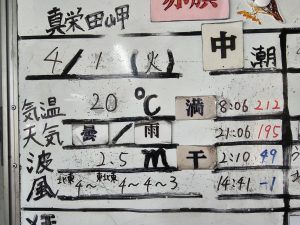 真栄田岬
中潮
4/1(火)
気温 20℃ 満 8:06 212
天気 曇/雨 21:06 195
波 2.5m 干 2:10 49
風 北東4~ 東北東4~4~3 14:41 -1